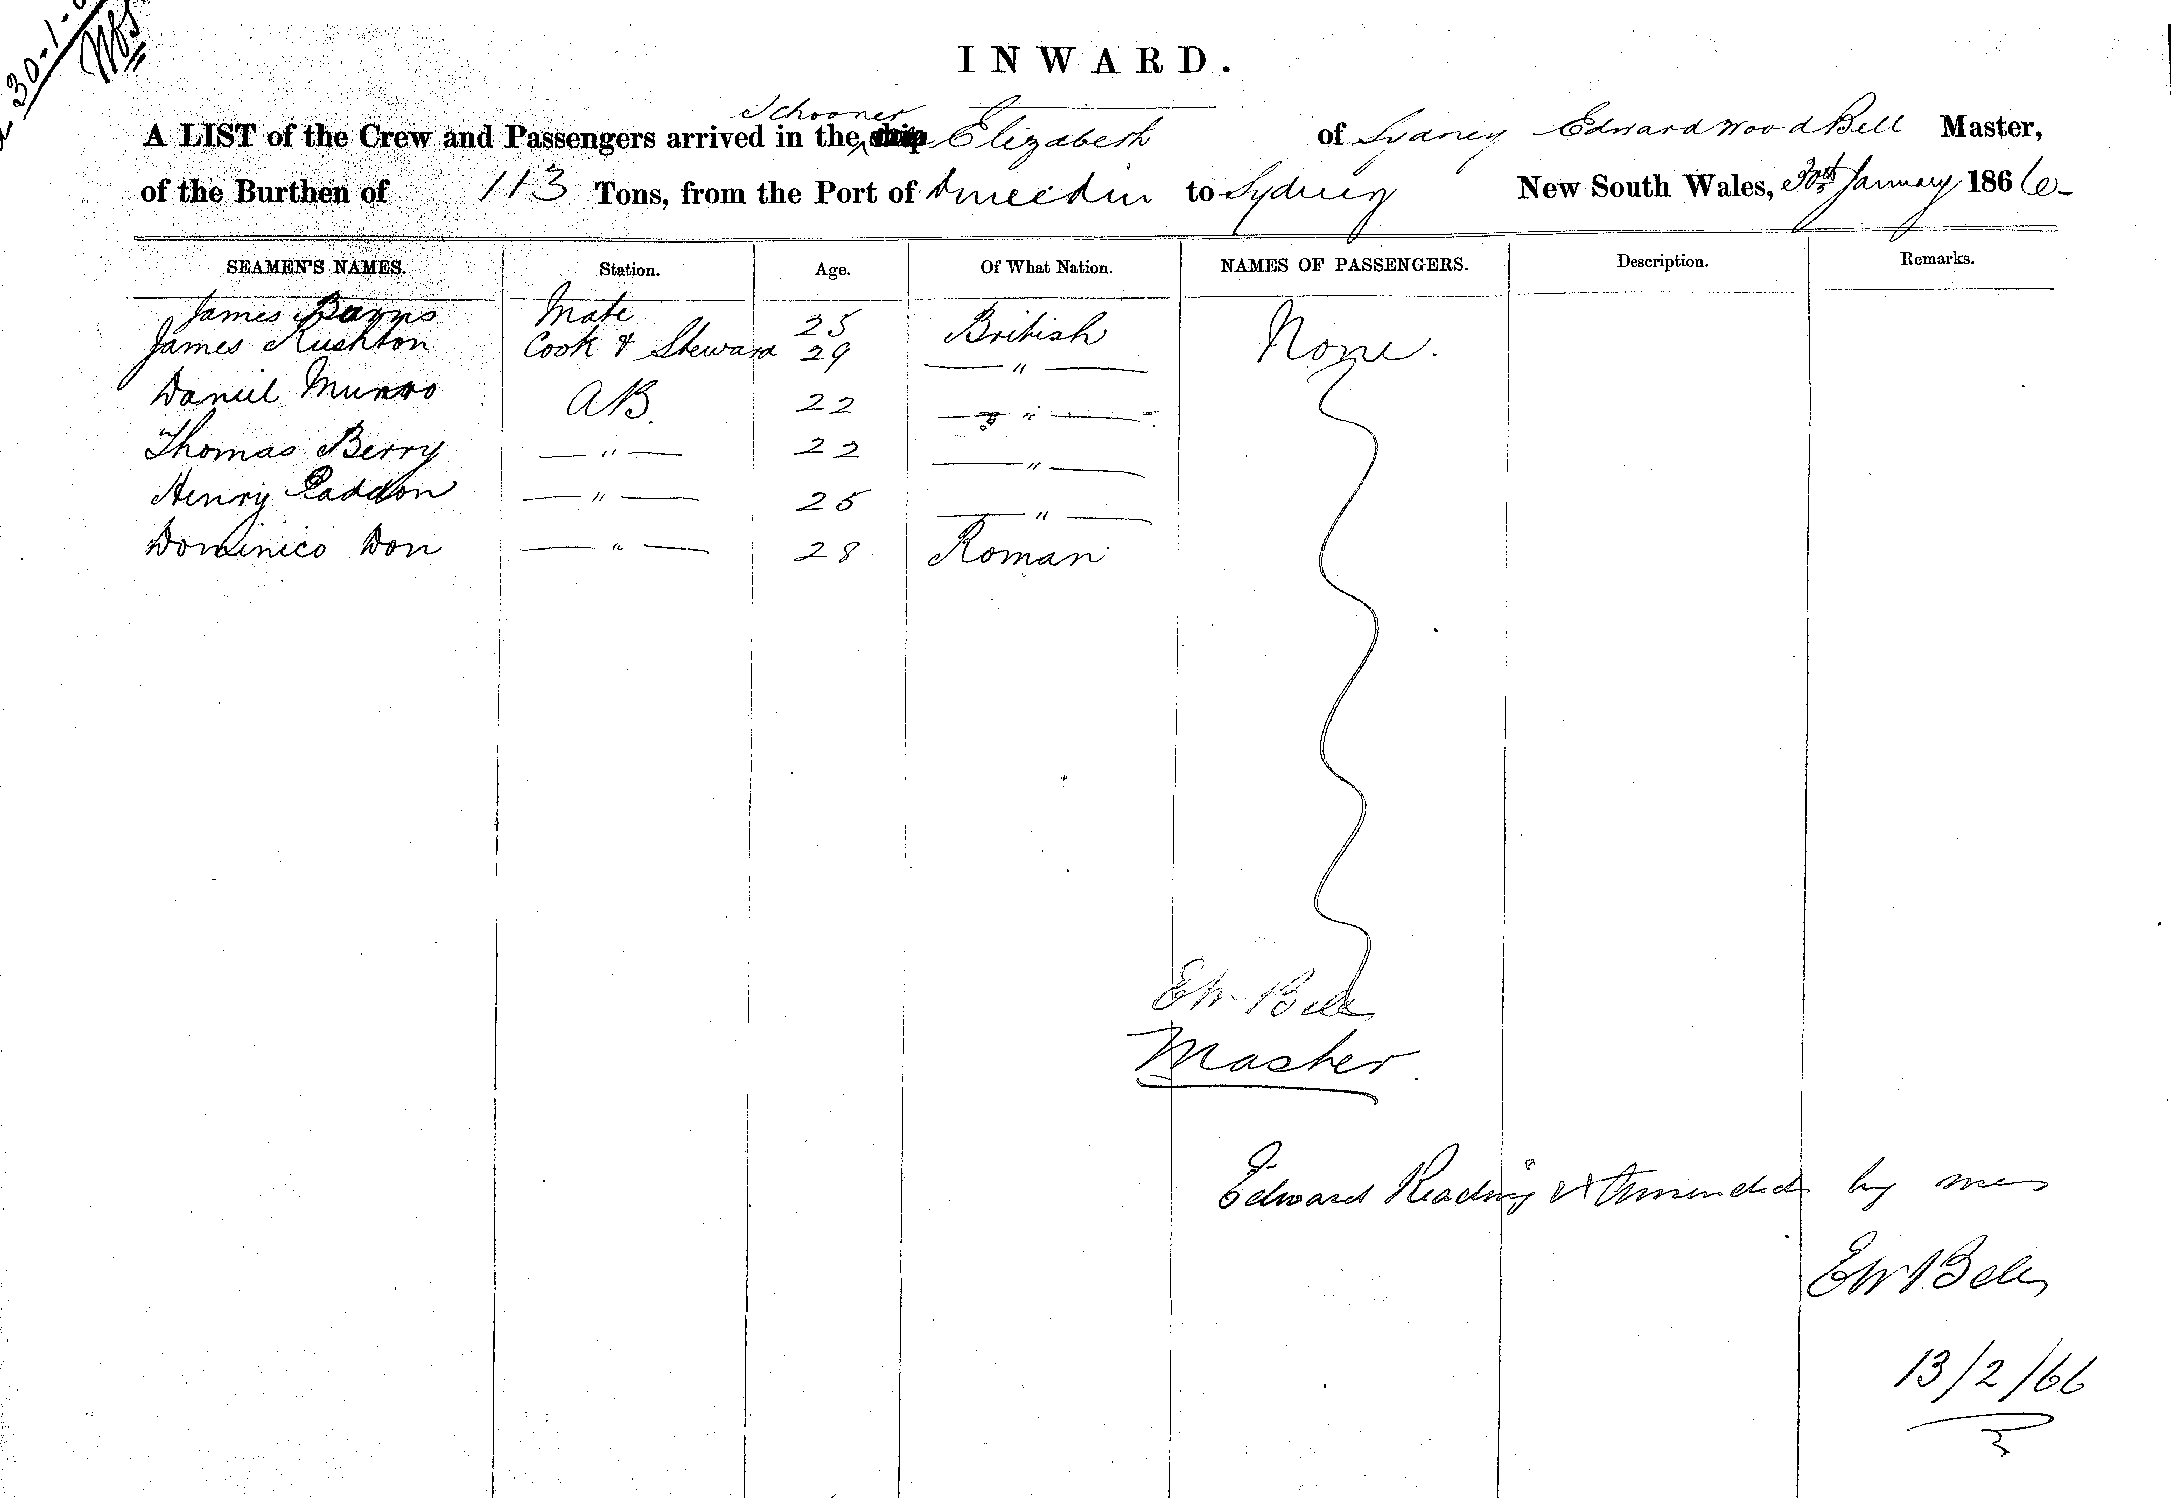 30-1-
INWARD.
Schooner
A LIST of the Crew and Passengers arrived in the ship Elizabeth of Sydney Edward Wood Bell Master,
of the Burthen of 113 Tons, from the Port of Dunedin to Sydney New South Wales, 30th January 1866
SEAMEN'S NAMES. Station. Age. Of What Nation. NAMES OF PASSENGERS. Description. Remarks.
James Barns Mate 25 British None.
James Rushton Cook & Steward 29 — " —
Daniel Munro AB. 22 — " —
Thomas Berry — " — 22 — " —
Henry Paddon — " — 25 — " —
Dominico Don — " — 28 Roman
EW Bell
Master
Edward Reading & Amended by me
EW Bell
13/2/66